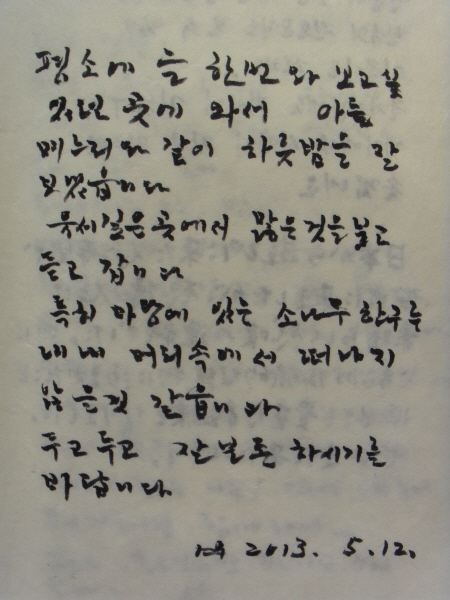 평소에 늘 한번 와 보고 싶
었던 곳에 와서 아들
며느리와 같이 하룻밤을 잘
보냈읍니다
곳에서 많은것을 보고
듣고 갑니다
특히 마당에 있는 소나무 한구루
내내 머리속에서 떠나지
않을것 같읍니다
두고두고 잘 보존 하시기를
바랍니다
2013. 5. 12.